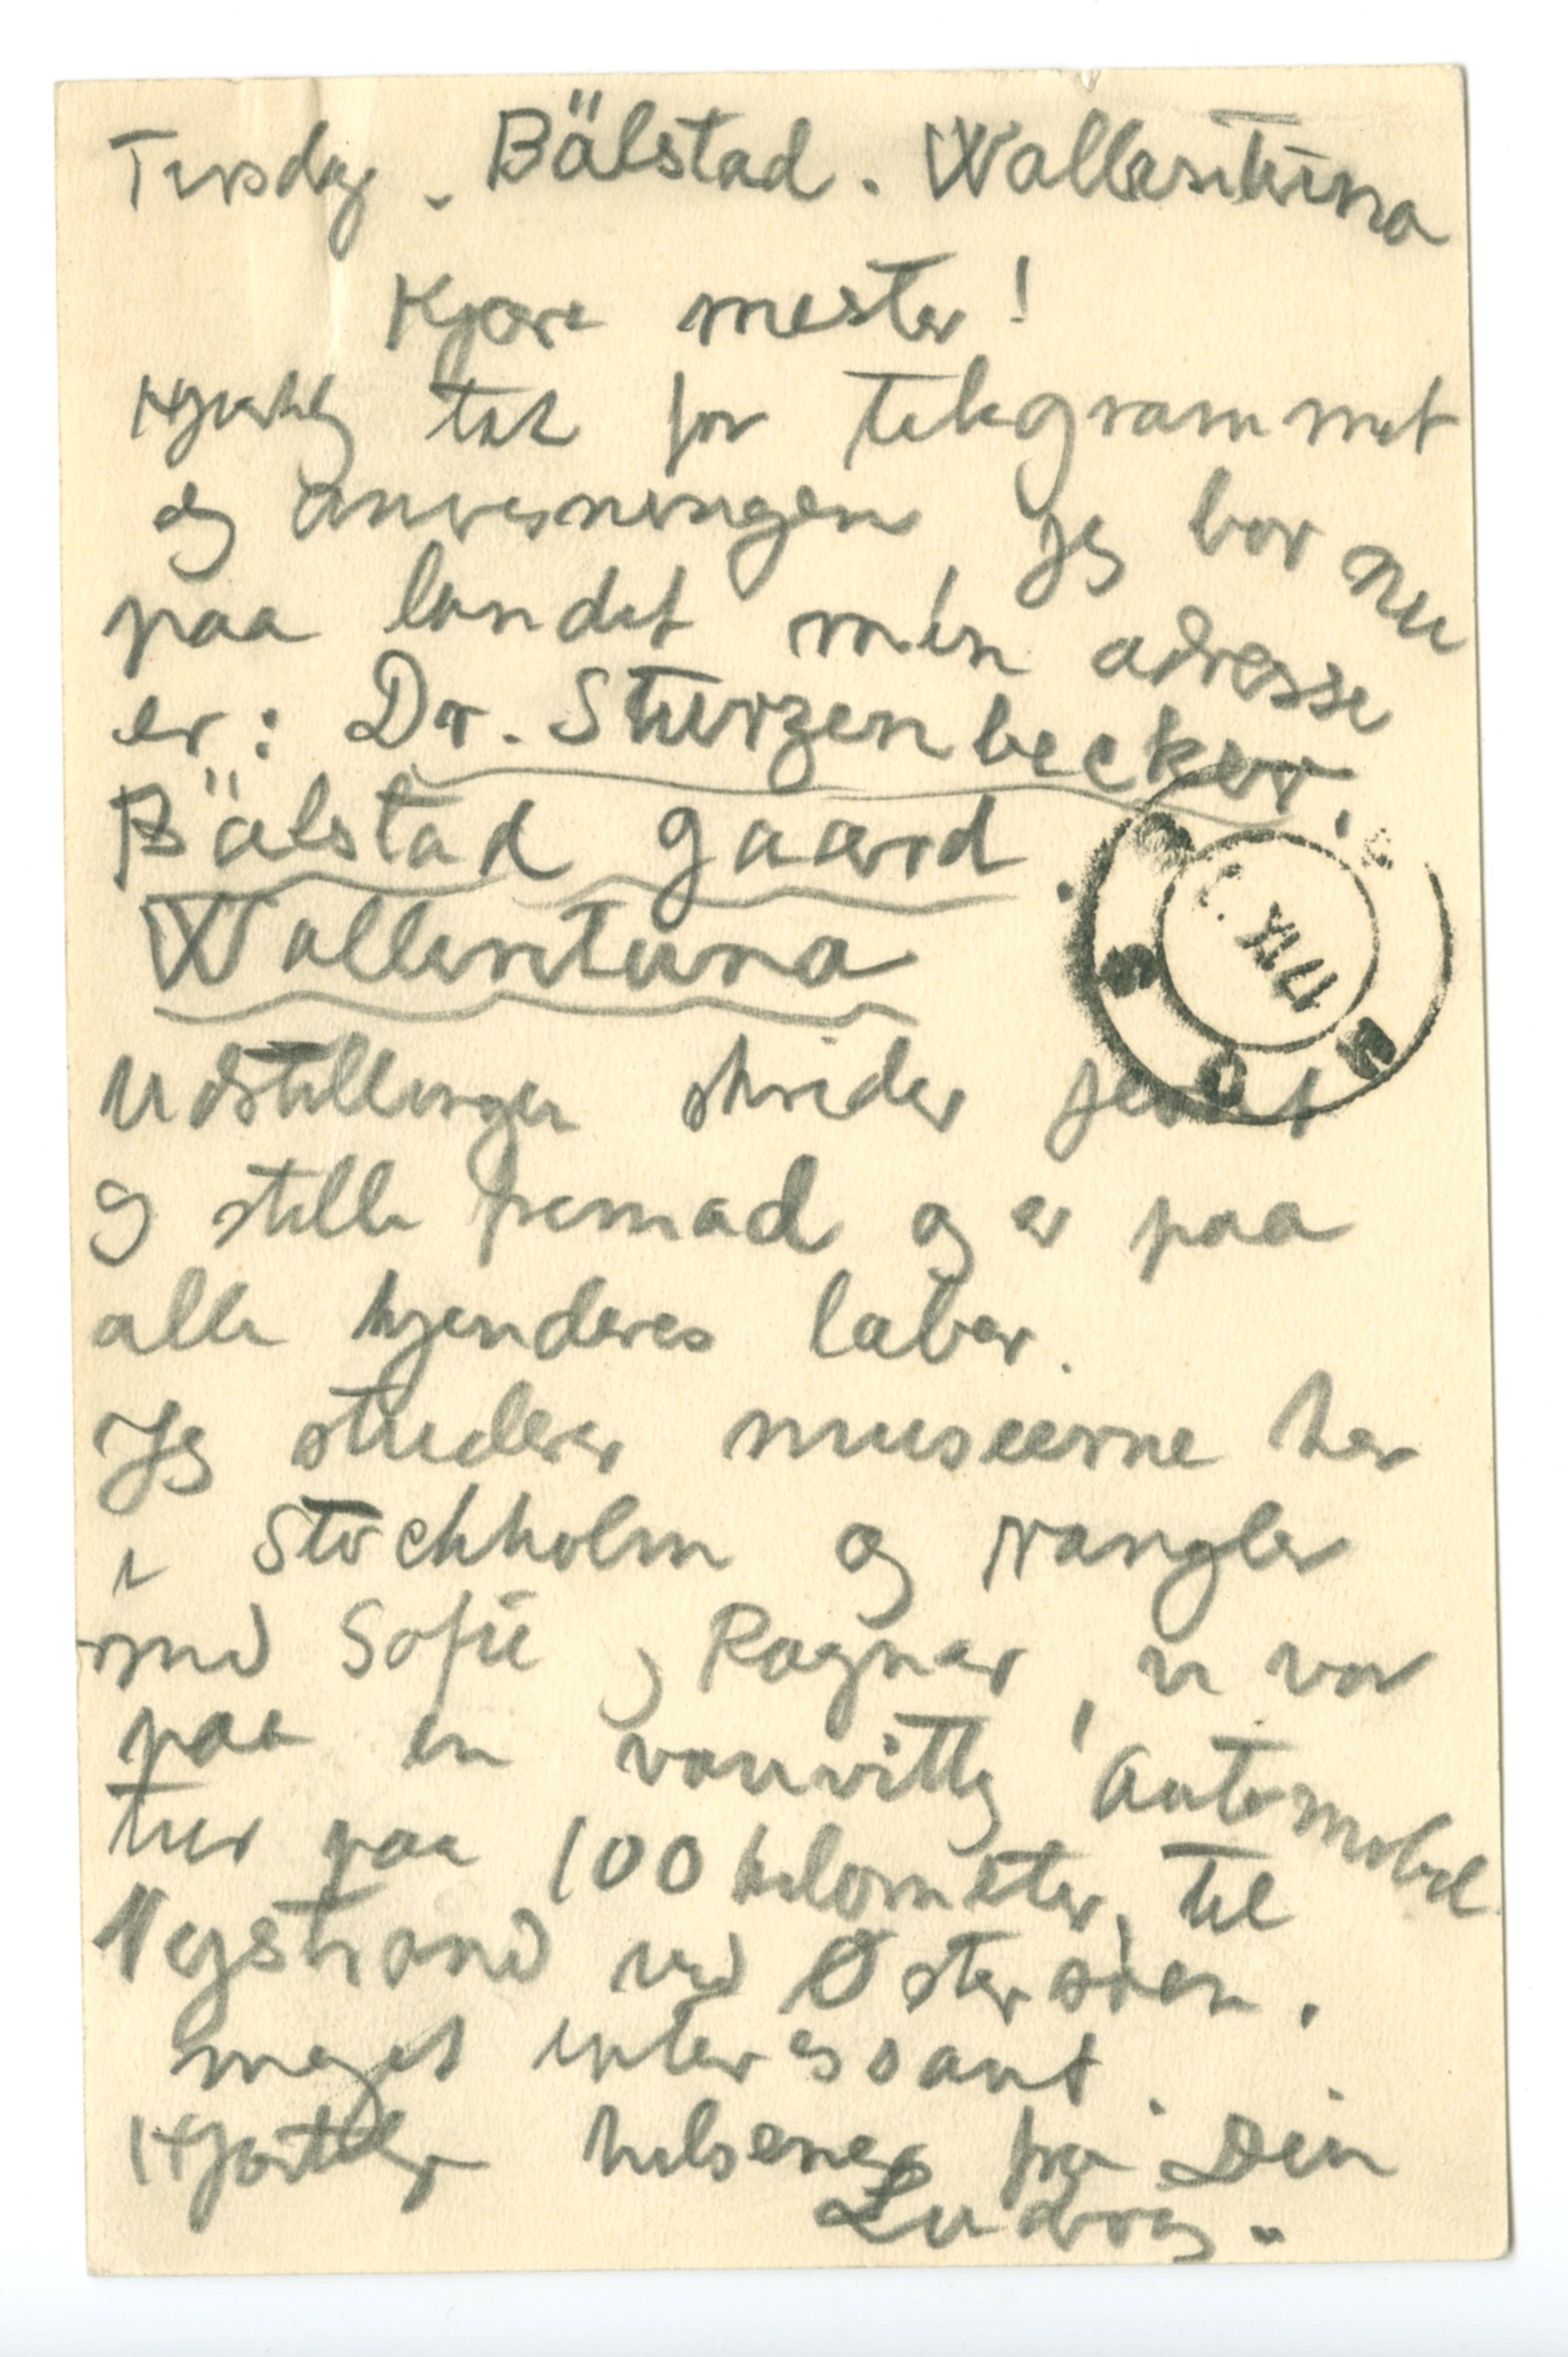 Tirsdag. Bälstad. Wallentuna
Kjære mester!
Hjertlig tak for telegrammet
og anvisningen jeg bor nu
paa landet min adresse
er: Dr. Sturzenbecker,
Bälstad gaard
Wallentuna
Udstillingen skrider jevnt
og stille fremad og er paa
alle kjenderes læber.
Jeg studerer museerne her
i Stockholm og rangler
med Sofie, Ragnar, vi var
paa en vanvittig automobil
tur paa 100 kilometer, til
Nystrand ved Østersöen.
meget interessant.
Hjertelige hilsener fra Din
Ludvig.
MOSS
XI.